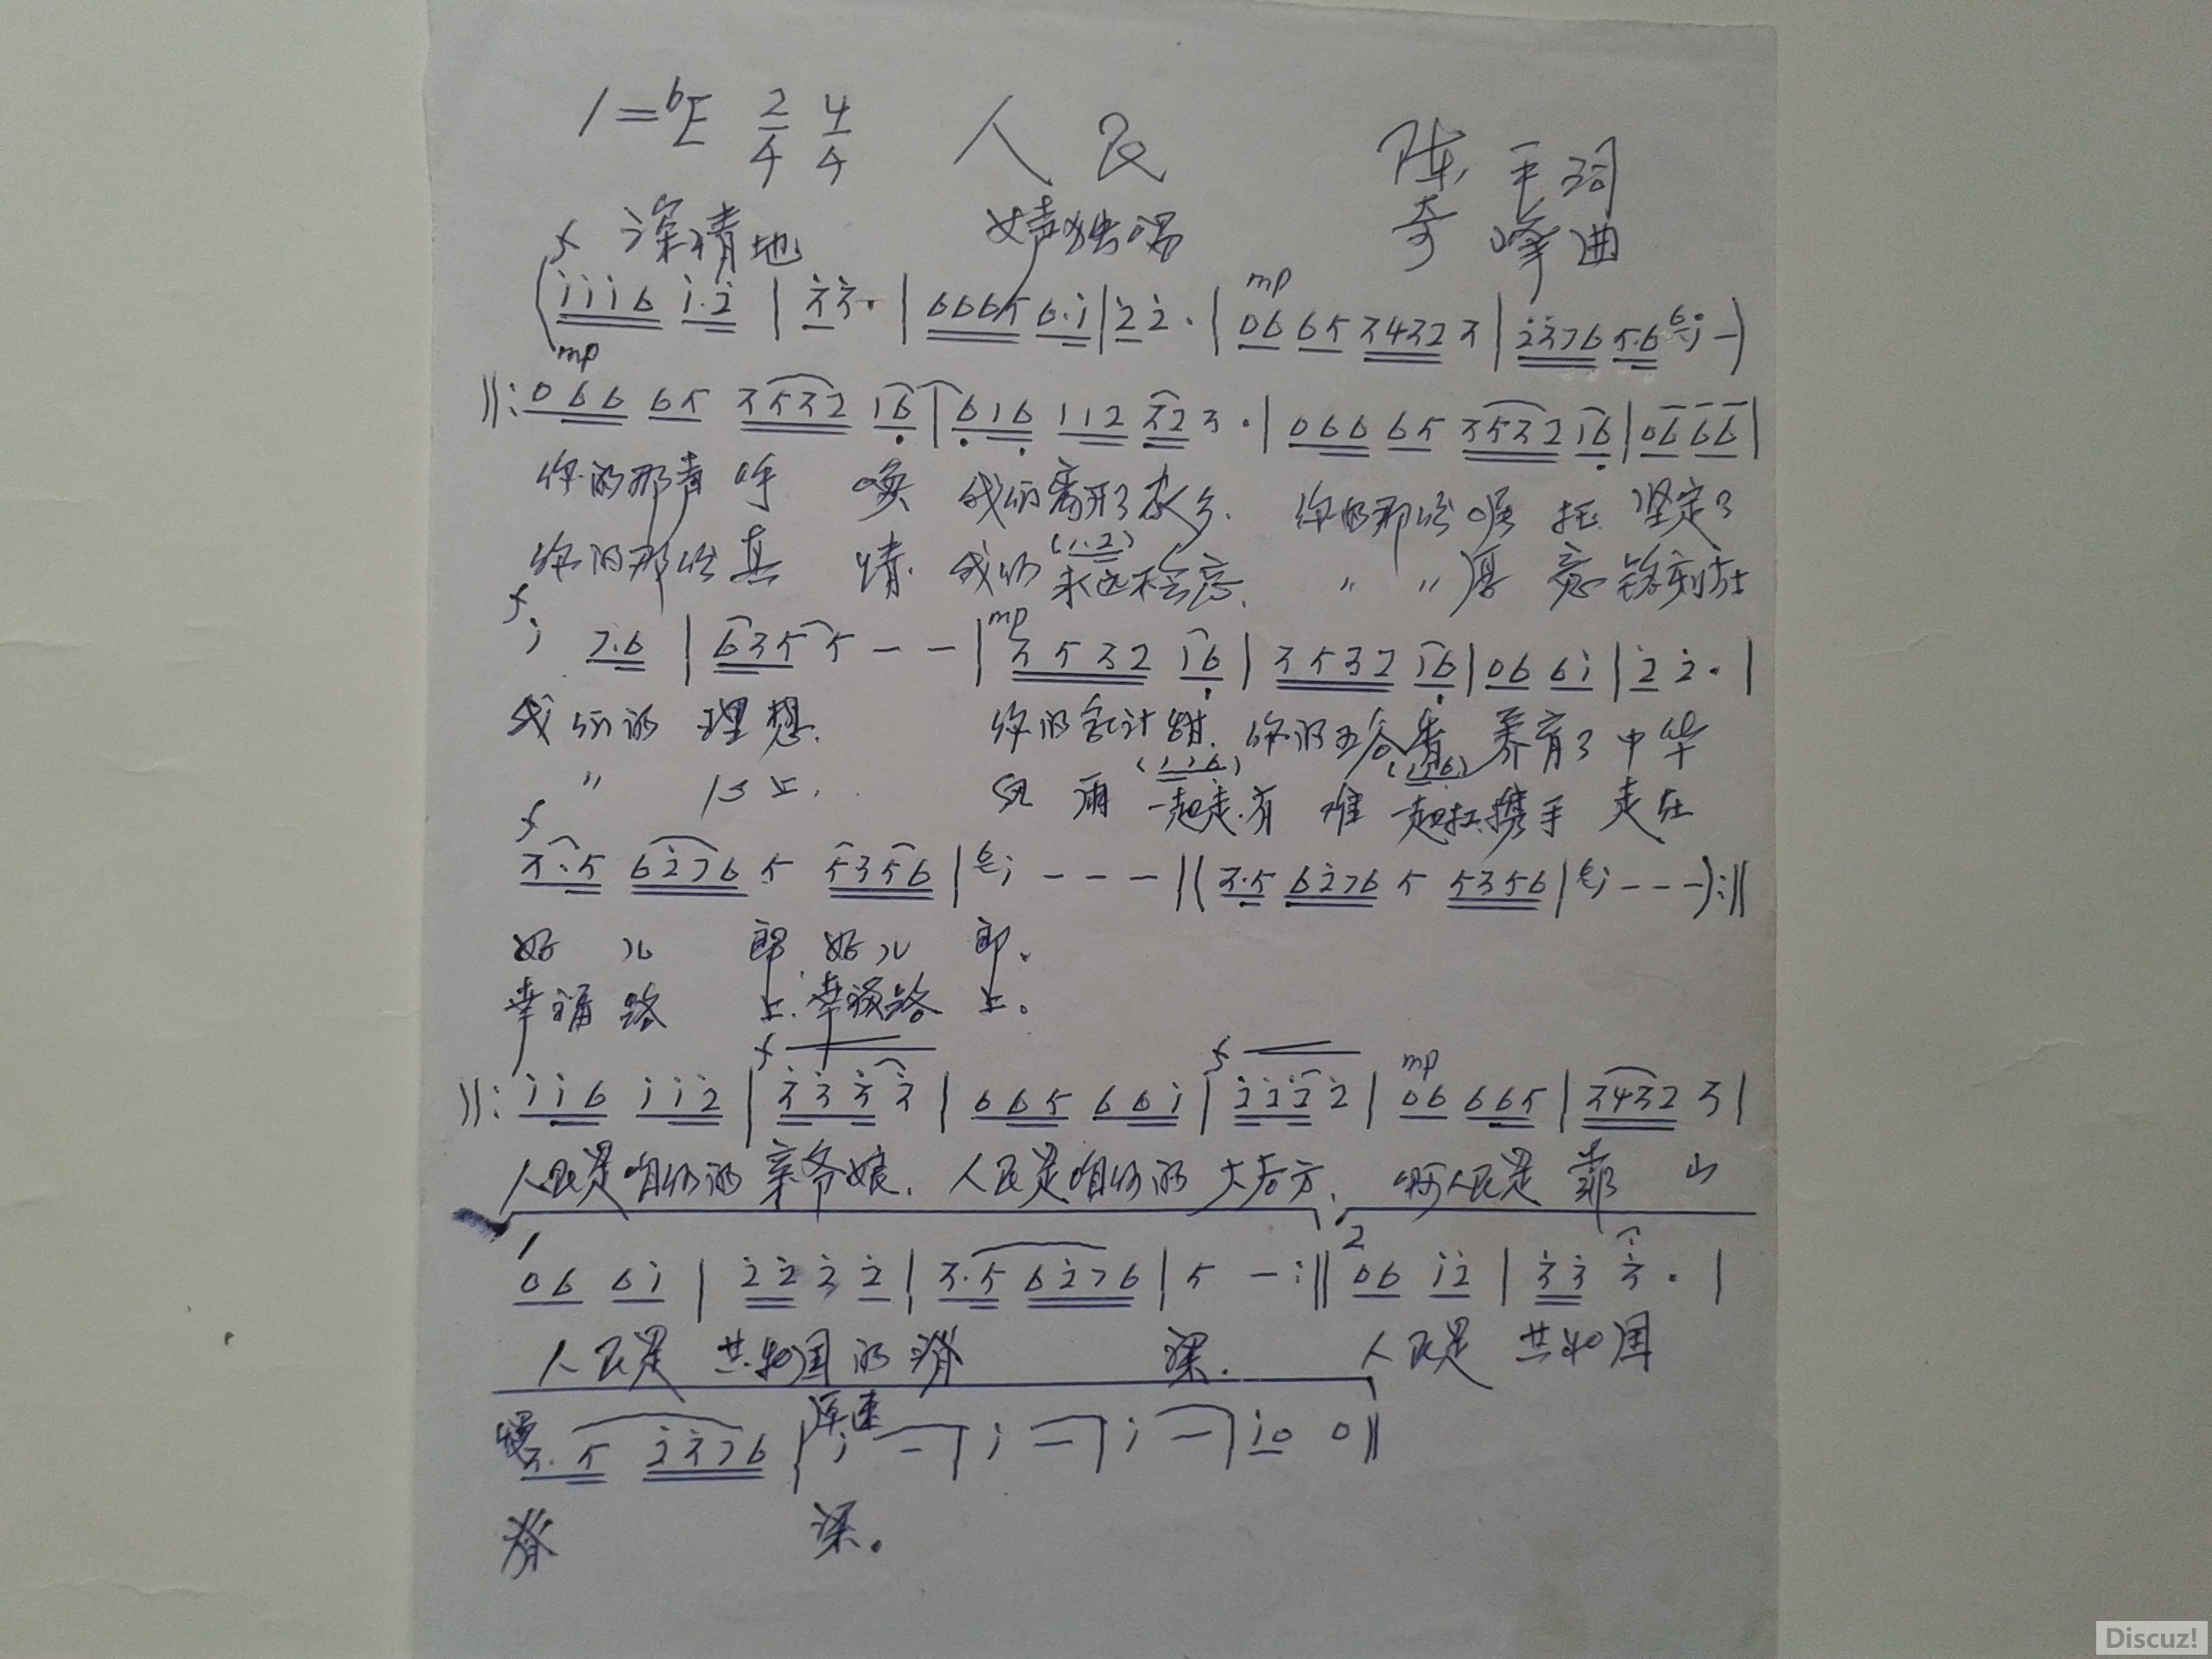 1=bE 2/4 4/4 人民 陈平词
f 深情地 女声独唱 奇峰曲
(i i i 6 i. 2 | 3 3. | 6 6 6 5 6. i | 2 2. | mp 0 6 6 5 3 4 3 2 3 | 2 3 7 6 5. 6 6 i -)
mp
||: 0 6 6 6 5 3 5 3 2 1 6 | 6 1 6 1 1 2 3 2 3. | 0 6 6 6 5 3 5 3 2 1 6 | 0 6 6 6 |
你的那声呼唤 我们离开了故乡. 你的那份嘱托 坚定了
你的那份真情. 我们 (1. 2) 永远不会忘. " " 厚意 镌刻在
f i 7. 6 | 6 3 5 5 - - | mp 3 5 3 2 1 6 | 3 5 3 2 1 6 | 0 6 6 i | 2 2. |
我们的理想. 你的乳汁甜. 你的五谷香 养育了中华
" 心上. 风雨 (1 1 6) 一起走. 有难 (1 1 6) 一起扛. 携手走在
f
3. 5 6 2 7 6 5 5 3 5 6 | 6 i - - - || (3. 5 6 2 7 6 5 5 3 5 6 | 6 i - - -) :||
好儿郎 好儿郎.
幸福路上. 幸福路上。
f f mp
||: i i 6 i i 2 | 3 3 3 3 | 6 6 5 6 6 i | 2 2 2 2 | 0 6 6 6 5 | 3 4 3 2 3 |
人民是咱们的亲爷娘. 人民是咱们的大后方. 啊人民是靠山
1 0 6 6 i | 2 2 3 2 | 3. 5 6 2 7 6 | 5 - :|| 2 0 6 i 2 | 3 3 3. |
人民是共和国的脊梁. 人民是共和国
慢 3. 5 2 3 7 6 | 原速 i - | i - | i - | i 0 0 ||
脊梁。
Discuz!